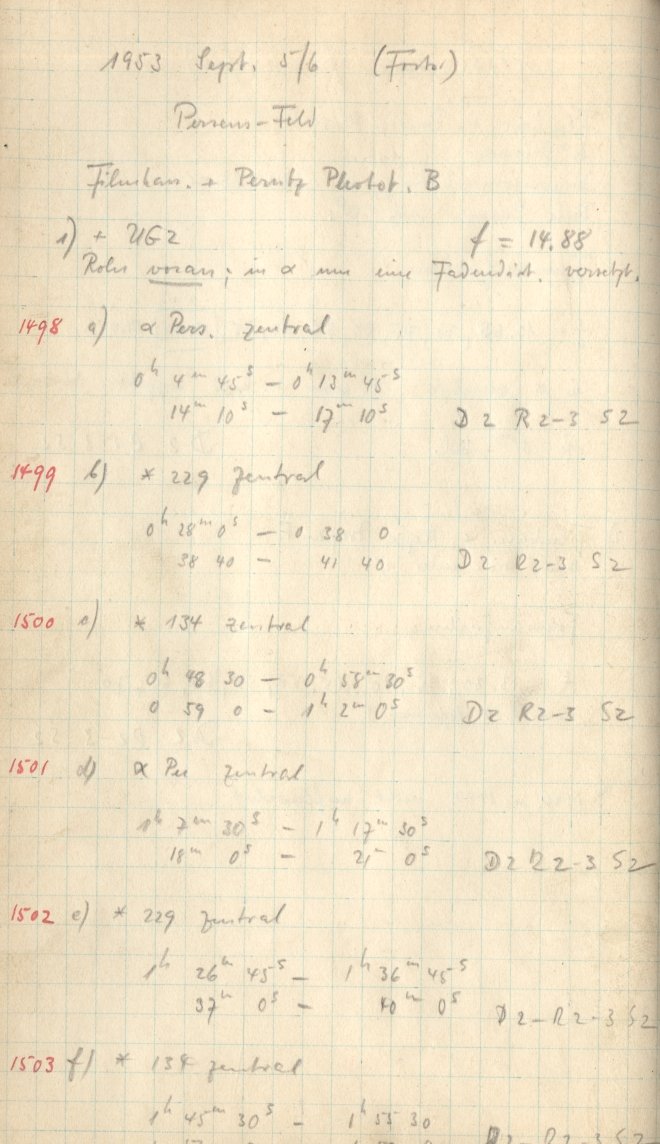 1953 Sept. 5/6 (Forts.)
Perseus-Feld
Filmkass. + Perutz Photot. B
1) + UG2 f = 14.88
Rohr voran; in α um eine Fadendist. versetzt.
1498 a) α Pers. zentral
0h 4m 45s – 0h 13m 45s
14m 10s – 17m 10s D2 R2-3 S2
1499 b) * 229 zentral
0h 28m 0s – 0 38 0
38 40 – 41 40 D2 R2-3 S2
1500 c) * 134 zentral
0h 48 30 – 0h 58m 30s
0 59 0 – 1h 2m 0s D2 R2-3 S2
1501 d) α Per zentral
1h 7m 30s – 1h 17m 30s
18m 0s – 21m 0s D2 R2-3 S2
1502 e) * 229 zentral
1h 26m 45s – 1h 36m 45s
37m 0s – 40m 0s D2-R2-3 S2
1503 f) * 134 zentral
1h 45m 30s – 1h 55 30
D2-R2-3 S2